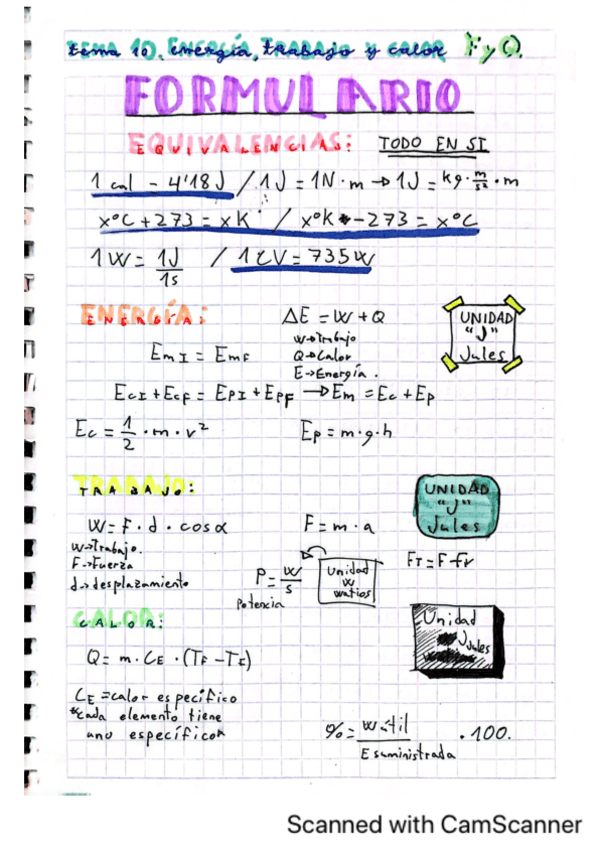 tema 10. Energía, trabajo y calor FyQ.
FORMULARIO
EQUIVALENCIAS: TODO EN SI
1 cal - 4'18J / 1J = 1N·m → 1J = kg·m/s²·m
x°C + 273 = xK / x°K - 273 = x°C
1W = 1J/1s / 1CV = 735W
ENERGÍA: ΔE = W + Q
W→Trabajo
Q→Calor
E→Energía.
UNIDAD
"J"
Jules
EmI = EmF
EcI + EcF = EPI + EPF → Em = Ec + Ep
Ec = 1/2 · m · v² Ep = m·g·h
TRABAJO:
UNIDAD
"J"
Jules
W = F · d · cosα F = m · a
W→Trabajo.
F→Fuerza
d→desplazamiento
P = W/s
Potencia
Unidad
W
watios
FT = F - Fr
CALOR:
Unidad
J
Jules
Q = m · CE · (TF - TI)
CE = calor específico
*cada elemento tiene
uno específico*
% = W útil / E suministrada · 100.
Scanned with CamScanner